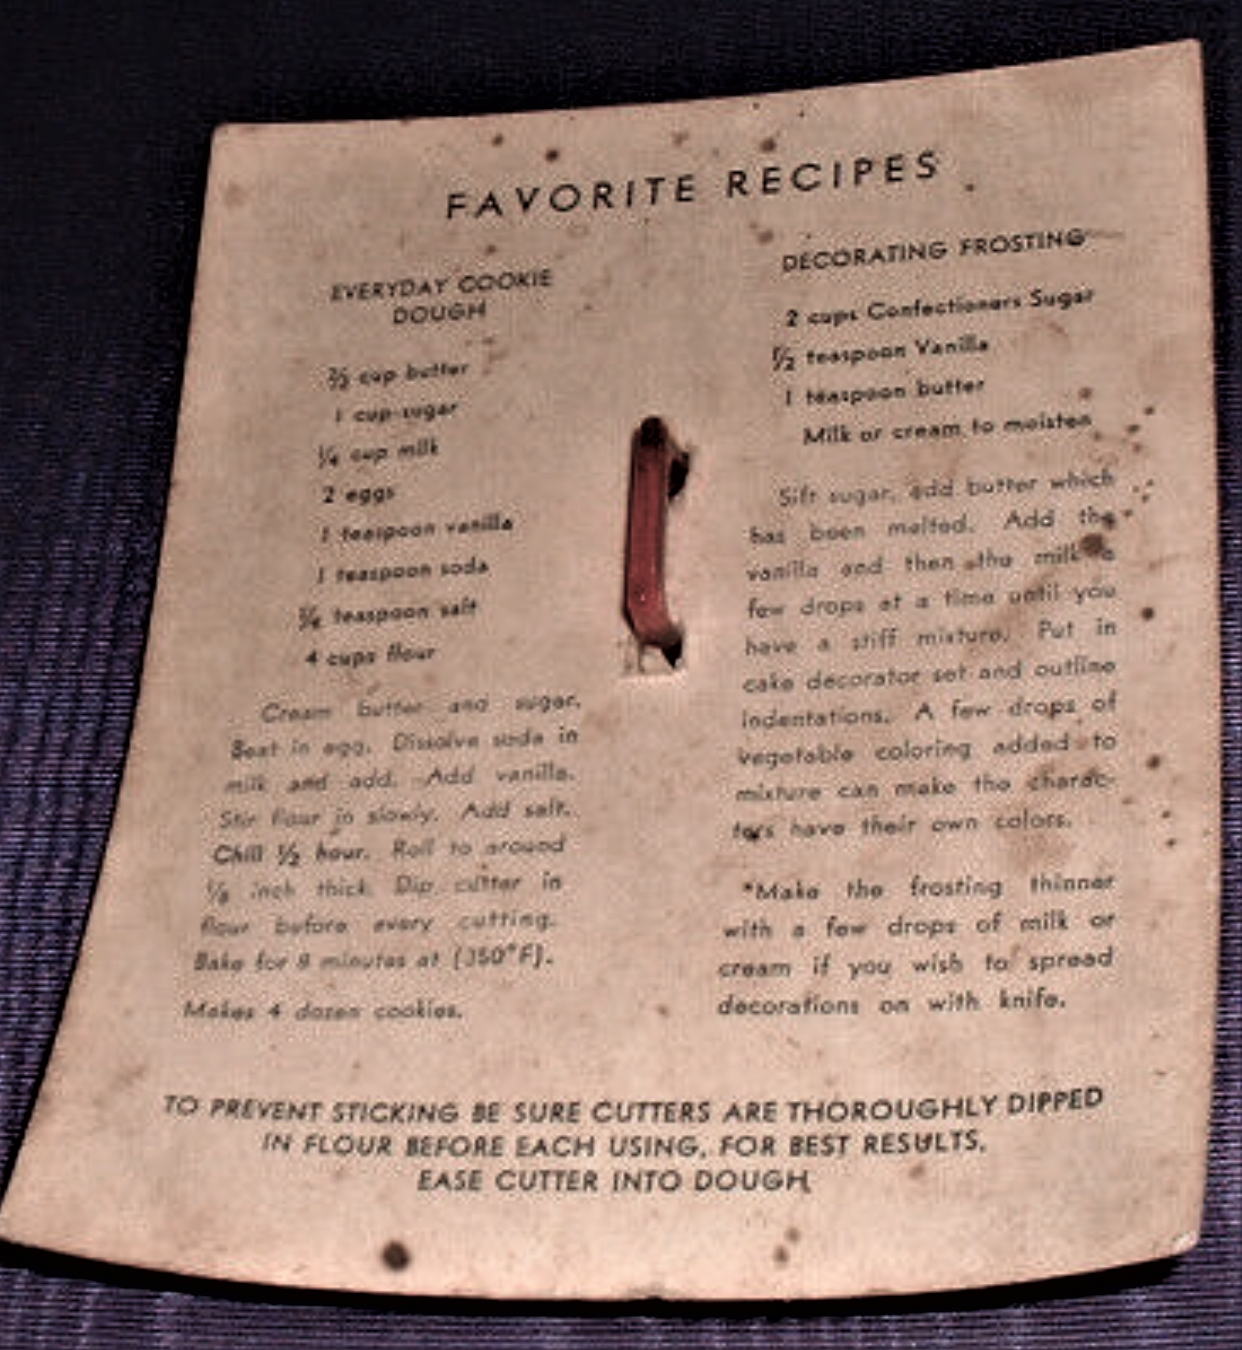 FAVORITE RECIPES
EVERYDAY COOKIE
DOUGH
⅔ cup butter
1 cup sugar
¼ cup milk
2 eggs
1 teaspoon vanilla
1 teaspoon soda
teaspoon salt
4 cups flour
Cream butter and sugar.
Beat in egg. Dissolve soda in
milk and add. Add vanilla.
Stir flour in slowly. Add salt.
Chill ½ hour. Roll to around
⅛ inch thick. Dip cutter in
flour before every cutting.
Bake for 8 minutes at (350°F).
Makes 4 dozen cookies.
DECORATING FROSTING
2 cups Confectioners Sugar
½ teaspoon Vanilla
1 teaspoon butter
Milk or cream to moisten
Sift sugar, add butter which
has been melted. Add the
vanilla and then the milk a
few drops at a time until you
have a stiff mixture. Put in
cake decorator set and outline
indentations. A few drops of
vegetable coloring added to
mixture can make the charac-
ters have their own colors.
*Make the frosting thinner
with a few drops of milk or
cream if you wish to spread
decorations on with knife.
TO PREVENT STICKING BE SURE CUTTERS ARE THOROUGHLY DIPPED
IN FLOUR BEFORE EACH USING, FOR BEST RESULTS,
EASE CUTTER INTO DOUGH